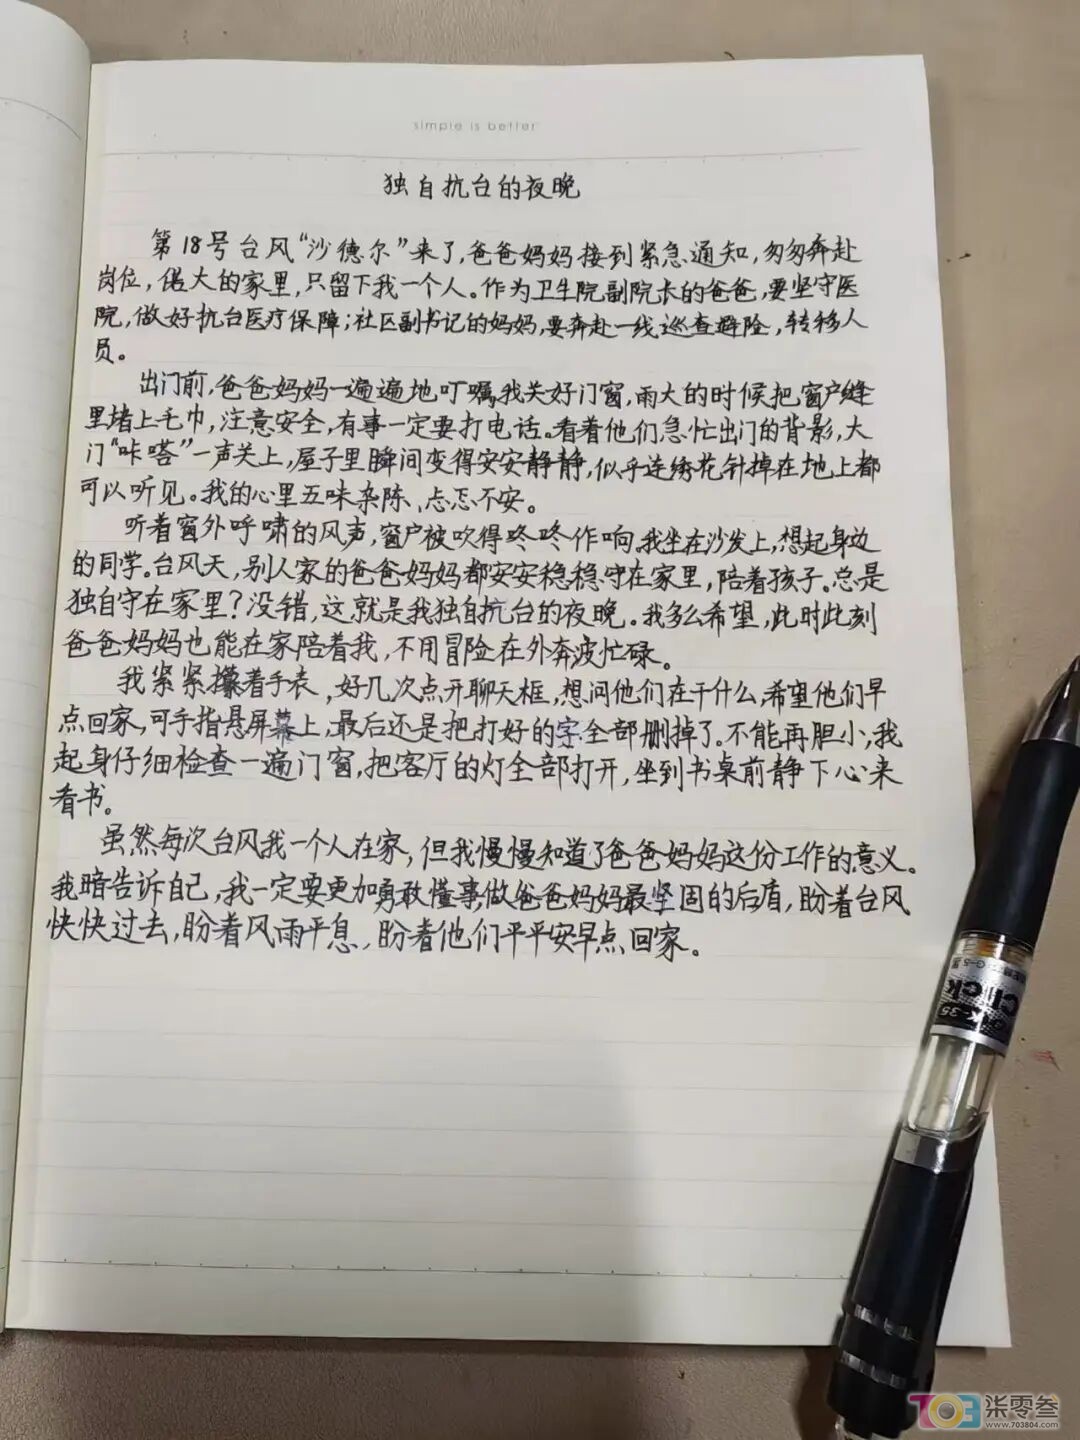 simple is better
独自抗台的夜晚
第18号台风“沙德尔”来了,爸爸妈妈接到紧急通知,匆匆奔赴
岗位,偌大的家里,只留下我一个人。作为卫生院副院长的爸爸,要坚守医
院,做好抗台医疗保障;社区副书记的妈妈,要奔赴一线巡查避险,转移人
员。
出门前,爸爸妈妈一遍遍地叮嘱,我关好门窗,雨大的时候把窗户缝
里堵上毛巾,注意安全,有事一定要打电话。看着他们急忙出门的背影,大
门“咔嗒”一声关上,屋子里瞬间变得安安静静,似乎连绣花针掉在地上都
可以听见。我的心里五味杂陈、忐忑不安。
听着窗外呼啸的风声,窗户被吹得咚咚作响,我坐在沙发上,想起身边
的同学。台风天,别人家的爸爸妈妈都安安稳稳守在家里,陪着孩子。总是
独自守在家里?没错,这就是我独自抗台的夜晚。我多么希望,此时此刻
爸爸妈妈也能在家陪着我,不用冒险在外奔波忙碌。
我紧紧攥着手表,好几次点开聊天框,想问他们在干什么,希望他们早
点回家,可手指悬屏幕上,最后还是把打好的字全部删掉了。不能再胆小,我
起身仔细检查一遍门窗,把客厅的灯全部打开,坐到书桌前静下心来
看书。
虽然每次台风我一个人在家,但我慢慢知道了爸爸妈妈这份工作的意义。
我暗告诉自己,我一定要更加勇敢懂事,做爸爸妈妈最坚固的后盾,盼着台风
快快过去,盼着风雨平息,盼着他们平平安早点回家。
Click
K-35
G-5
703 柒零叁
www.703804.com